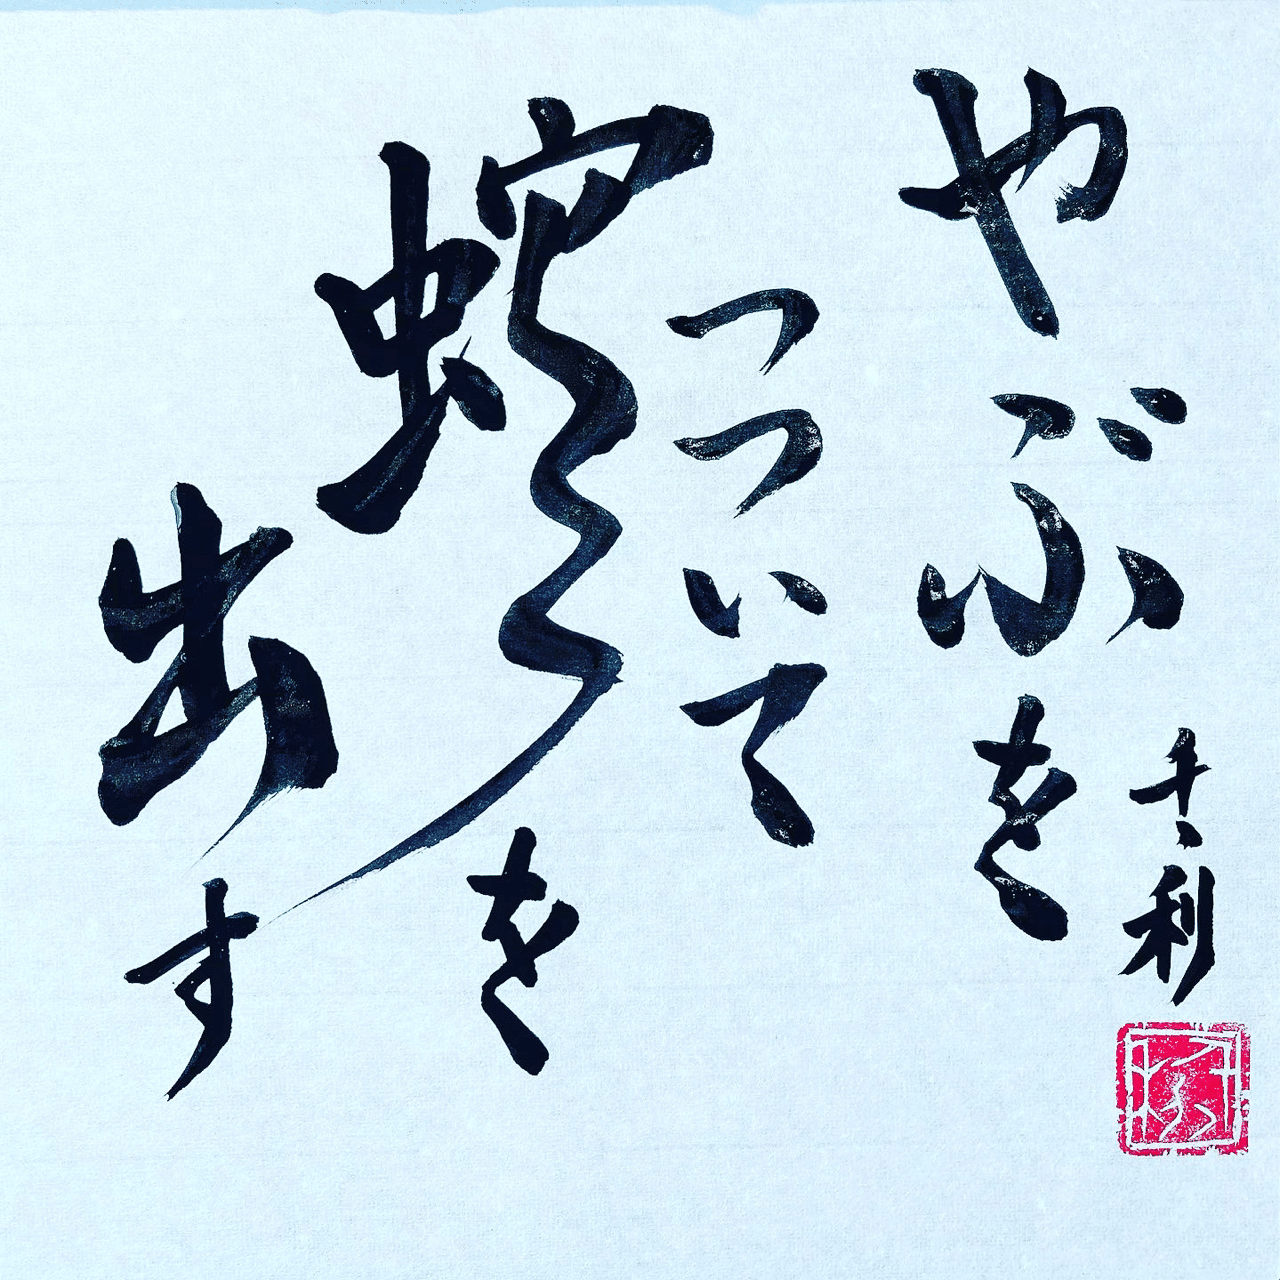 やぶを
つついて
蛇を
出す
利